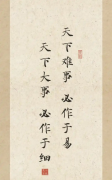 天下难事 必作于易
天下大事 必作于细